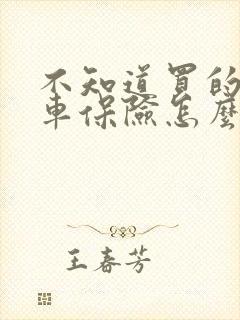 不知道買的
車保險怎麼
王春芳